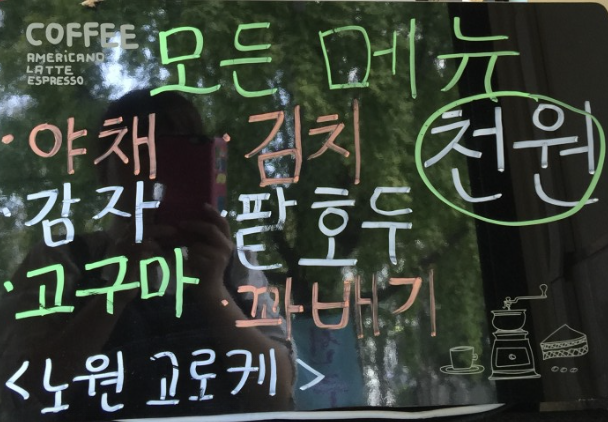 COFFEE
AMERICANO
LATTE
ESPRESSO
모든 메뉴
천원
·야채 ·김치
·감자 ·팥호두
·고구마 ·꽈배기
<노원 고로케>